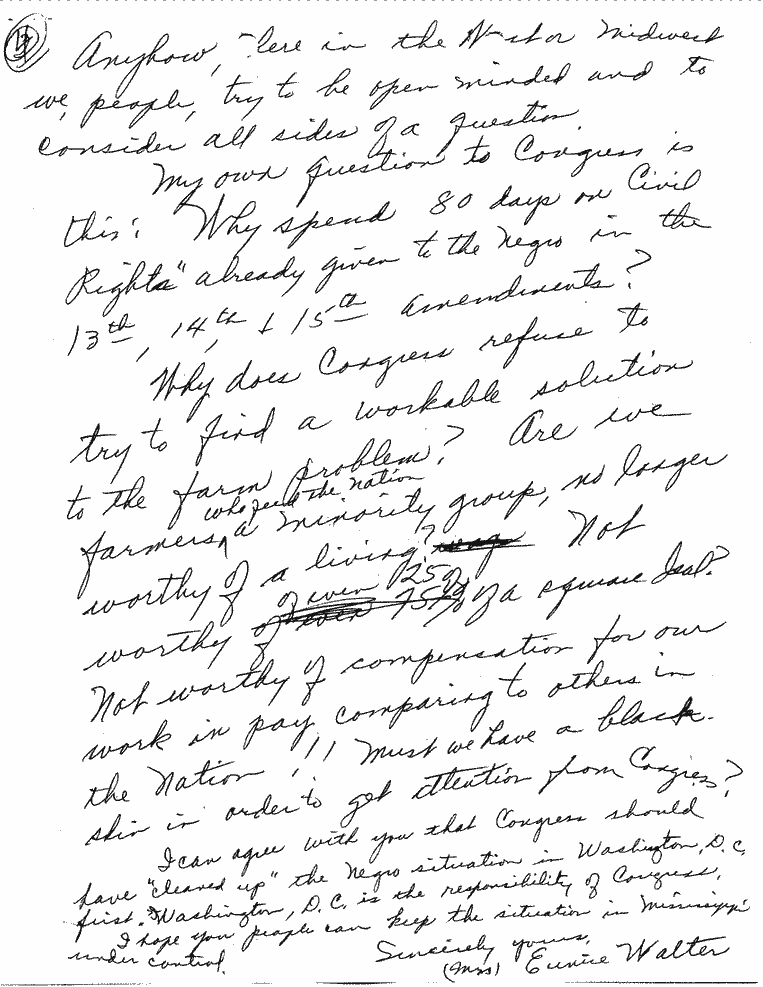 Anyhow, here in the West or Midwest
we, people, try to be open minded and to
consider all sides of a question.
My own question to Congress is
this: Why spend 80 days on Civil
Rights" already given to the Negro in the
13th, 14th, + 15th amendments?
Why does Congress refuse to
try to find a workable solution
to the farm problem? Are we
who feed the nation
farmers, a minority group, no longer
worthy of a living? Not
of even 25%
worthy of a square deal?
Not worthy of compensation for our
work in pay comparing to others in
the Nation!!! Must we have a black
skin in order to get attention from Congress?
I can agree with you that Congress should
have "cleaned up" the Negro situation in Washington, D.C.
first. Washington, D.C. is the responsibility of Congress.
I hope you people can keep the situation in Mississippi
under control.
Sincerely yours,
(Mrs) Eunice Walter